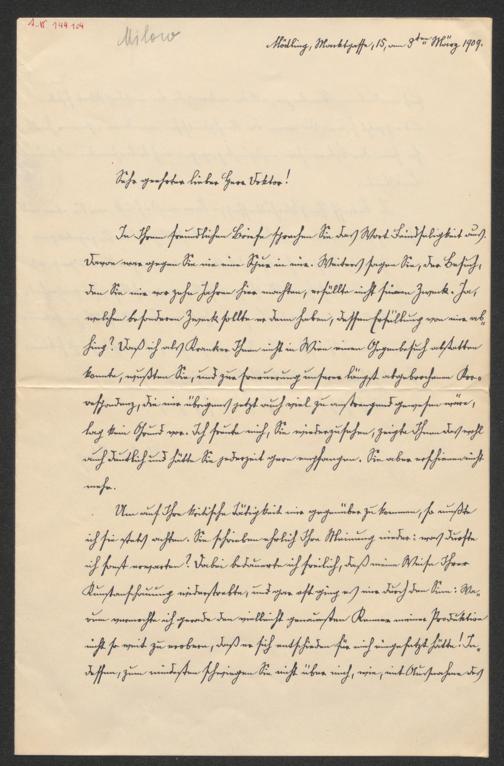 I. N. 149.104
Milow
Mödling, Marktgasse, 15, am 3ten März 1909.
Sehr geehrter lieber Herr Doktor!
In Ihrem freundlichen Briefe sprachen Sie das Wort Feindseligkeit aus.
Davon war gegen Sie nie eine Spur in mir. Weiters sagen Sie, der Besuch,
den Sie mir vor zehn Jahren hier machten, erfüllte nicht seinen Zweck. Ja,
welchen besonderen Zweck sollte er denn haben, dessen Erfüllung von mir ab-
hing? Daß ich als Kranker Ihnen nicht in Wien einen Gegenbesuch abstatten
konnte, wußten Sie, und zur Erneuerung unserer längst abgebrochenen Kor-
respondenz, die mir übrigens jetzt auch viel zu anstrengend gewesen wäre,
lag kein Grund vor. Ich freute mich, Sie wiederzusehen, zeigte Ihnen das wohl
auch deutlich und hätte Sie jederzeit gern empfangen. Sie aber erschienen nicht
mehr.
Um auf Ihre kritische Tätigkeit mir gegenüber zu kommen, so mußte
ich sie stets achten. Sie schrieben ehrlich Ihre Meinung nieder: was durfte
ich sonst erwarten? Dabei bedauerte ich freilich, daß meine Weise Ihrer
Kunstanschauung widerstrebte, und gar oft ging es mir durch den Sinn: Wa-
rum vermochte ich gerade den vielleicht genauesten Kenner meiner Produktion
nicht so weit zu erobern, daß er sich entschieden für mich eingesetzt hätte! In-
dessen, zum mindesten schwiegen Sie nicht über mich, wie, mit Ausnahme des